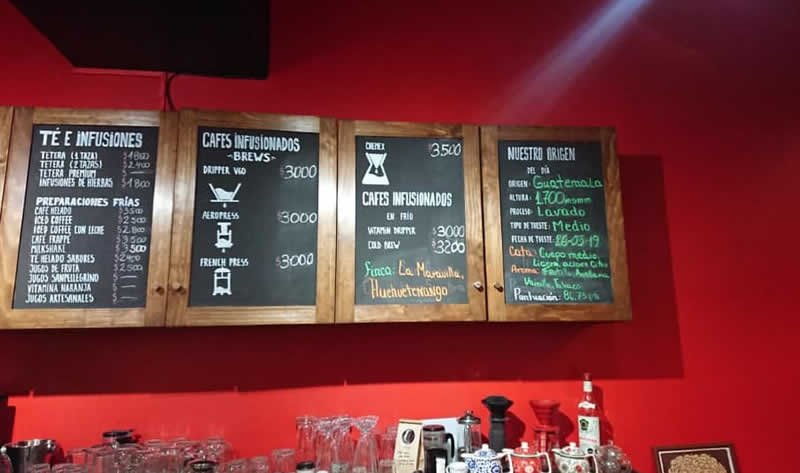 TÉ E INFUSIONES
TETERA (1 TAZA) $1800
TETERA (2 TAZAS) $2.400
TETERA PREMIUM $
INFUSIONES DE HIERBAS $1800
PREPARACIONES FRÍAS
CAFÉ HELADO $3500
ICED COFFEE $2500
ICED COFFEE CON LECHE $2.800
CAFÉ FRAPPE $3500
MILKSHAKE $3.500
TÉ HELADO SABORES $2400
JUGOS DE FRUTA $2500
JUGOS SANPELLEGRINO $ —
VITAMINA NARANJA $ —
JUGOS ARTESANALES $ —
CAFES INFUSIONADOS
~BREWS~
DRIPPER V60 $3000
AEROPRESS $3000
FRENCH PRESS $3000
CHEMEX $3.500
CAFES INFUSIONADOS
EN FRÍO
DRIPPER $3000
COLD BREW $3200
Finca: La Maravilla,
Huehuetenango
NUESTRO ORIGEN
DEL DÍA
ORIGEN: Guatemala
ALTURA: 1.700 msnm
PROCESO: Lavado
TIPO DE TUESTE: Medio
FECHA DE TUESTE: 26-03-19
Cata: Cuerpo medio,
Aroma: Avellana
Vainilla, Tabaco.
Puntuación: 86.75 pts